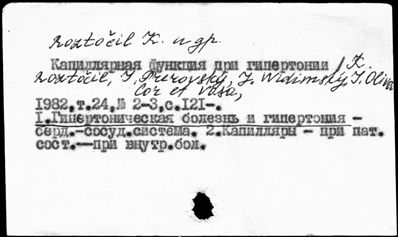 Roztočil K. и др.
Капиллярная функция при гипертонии / K.
Roztočil, J. Prerovský, J. Widimský, J. Oliva
Cor et Vasa,
1982, т.24, № 2-3, с.121-.
1.Гипертоническая болезнь и гипертония -
серд.-сосуд.система. 2.Капилляры - при пат.
сост.--при внутр.бол.